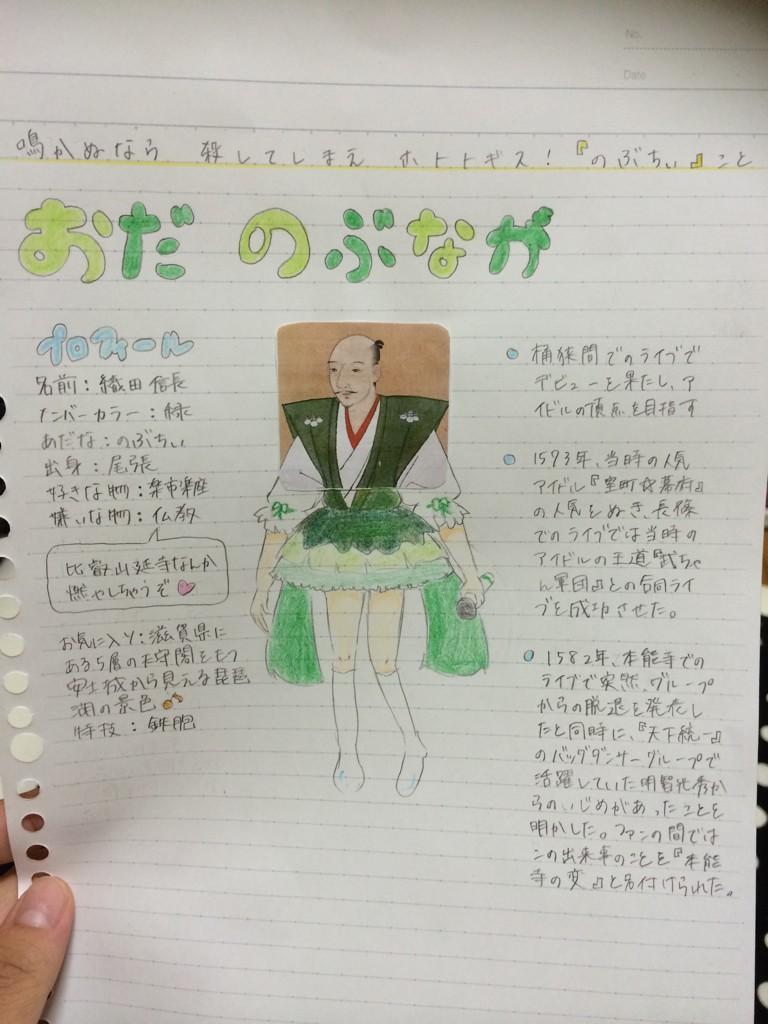 No.
Date
鳴かぬなら 殺してしまえ ホトトギス！『のぶちぃ』こと
おだ のぶなが
プロフィール
名前：織田信長
ナンバーカラー：緑
あだな：のぶちぃ
出身：尾張
好きな物：楽市楽座
嫌いな物：仏教
比叡山延寺なんか
燃やしちゃうぞ
お気に入り：滋賀県に
ある5層の天守閣をもつ
安土城から見える琵琶
湖の景色
特技：鉄砲
桶狭間でのライブで
デビューを果たし、ア
イドルの頂点を目指す
1573年、当時の人気
アイドル『室町☆幕府』
の人気をぬき、長篠
でのライブでは当時の
アイドルの王道『武ちゃ
ん軍団』との合同ライ
ブを成功させた。
1582年、本能寺での
ライブで突然、グループ
からの脱退を発表し
たと同時に、『天下統一』
のバックダンサーグループで
活躍していた明智光秀か
らのいじめがあったことを
明かした。ファンの間では
この出来事のことを『本能
寺の変』と名付けられた。